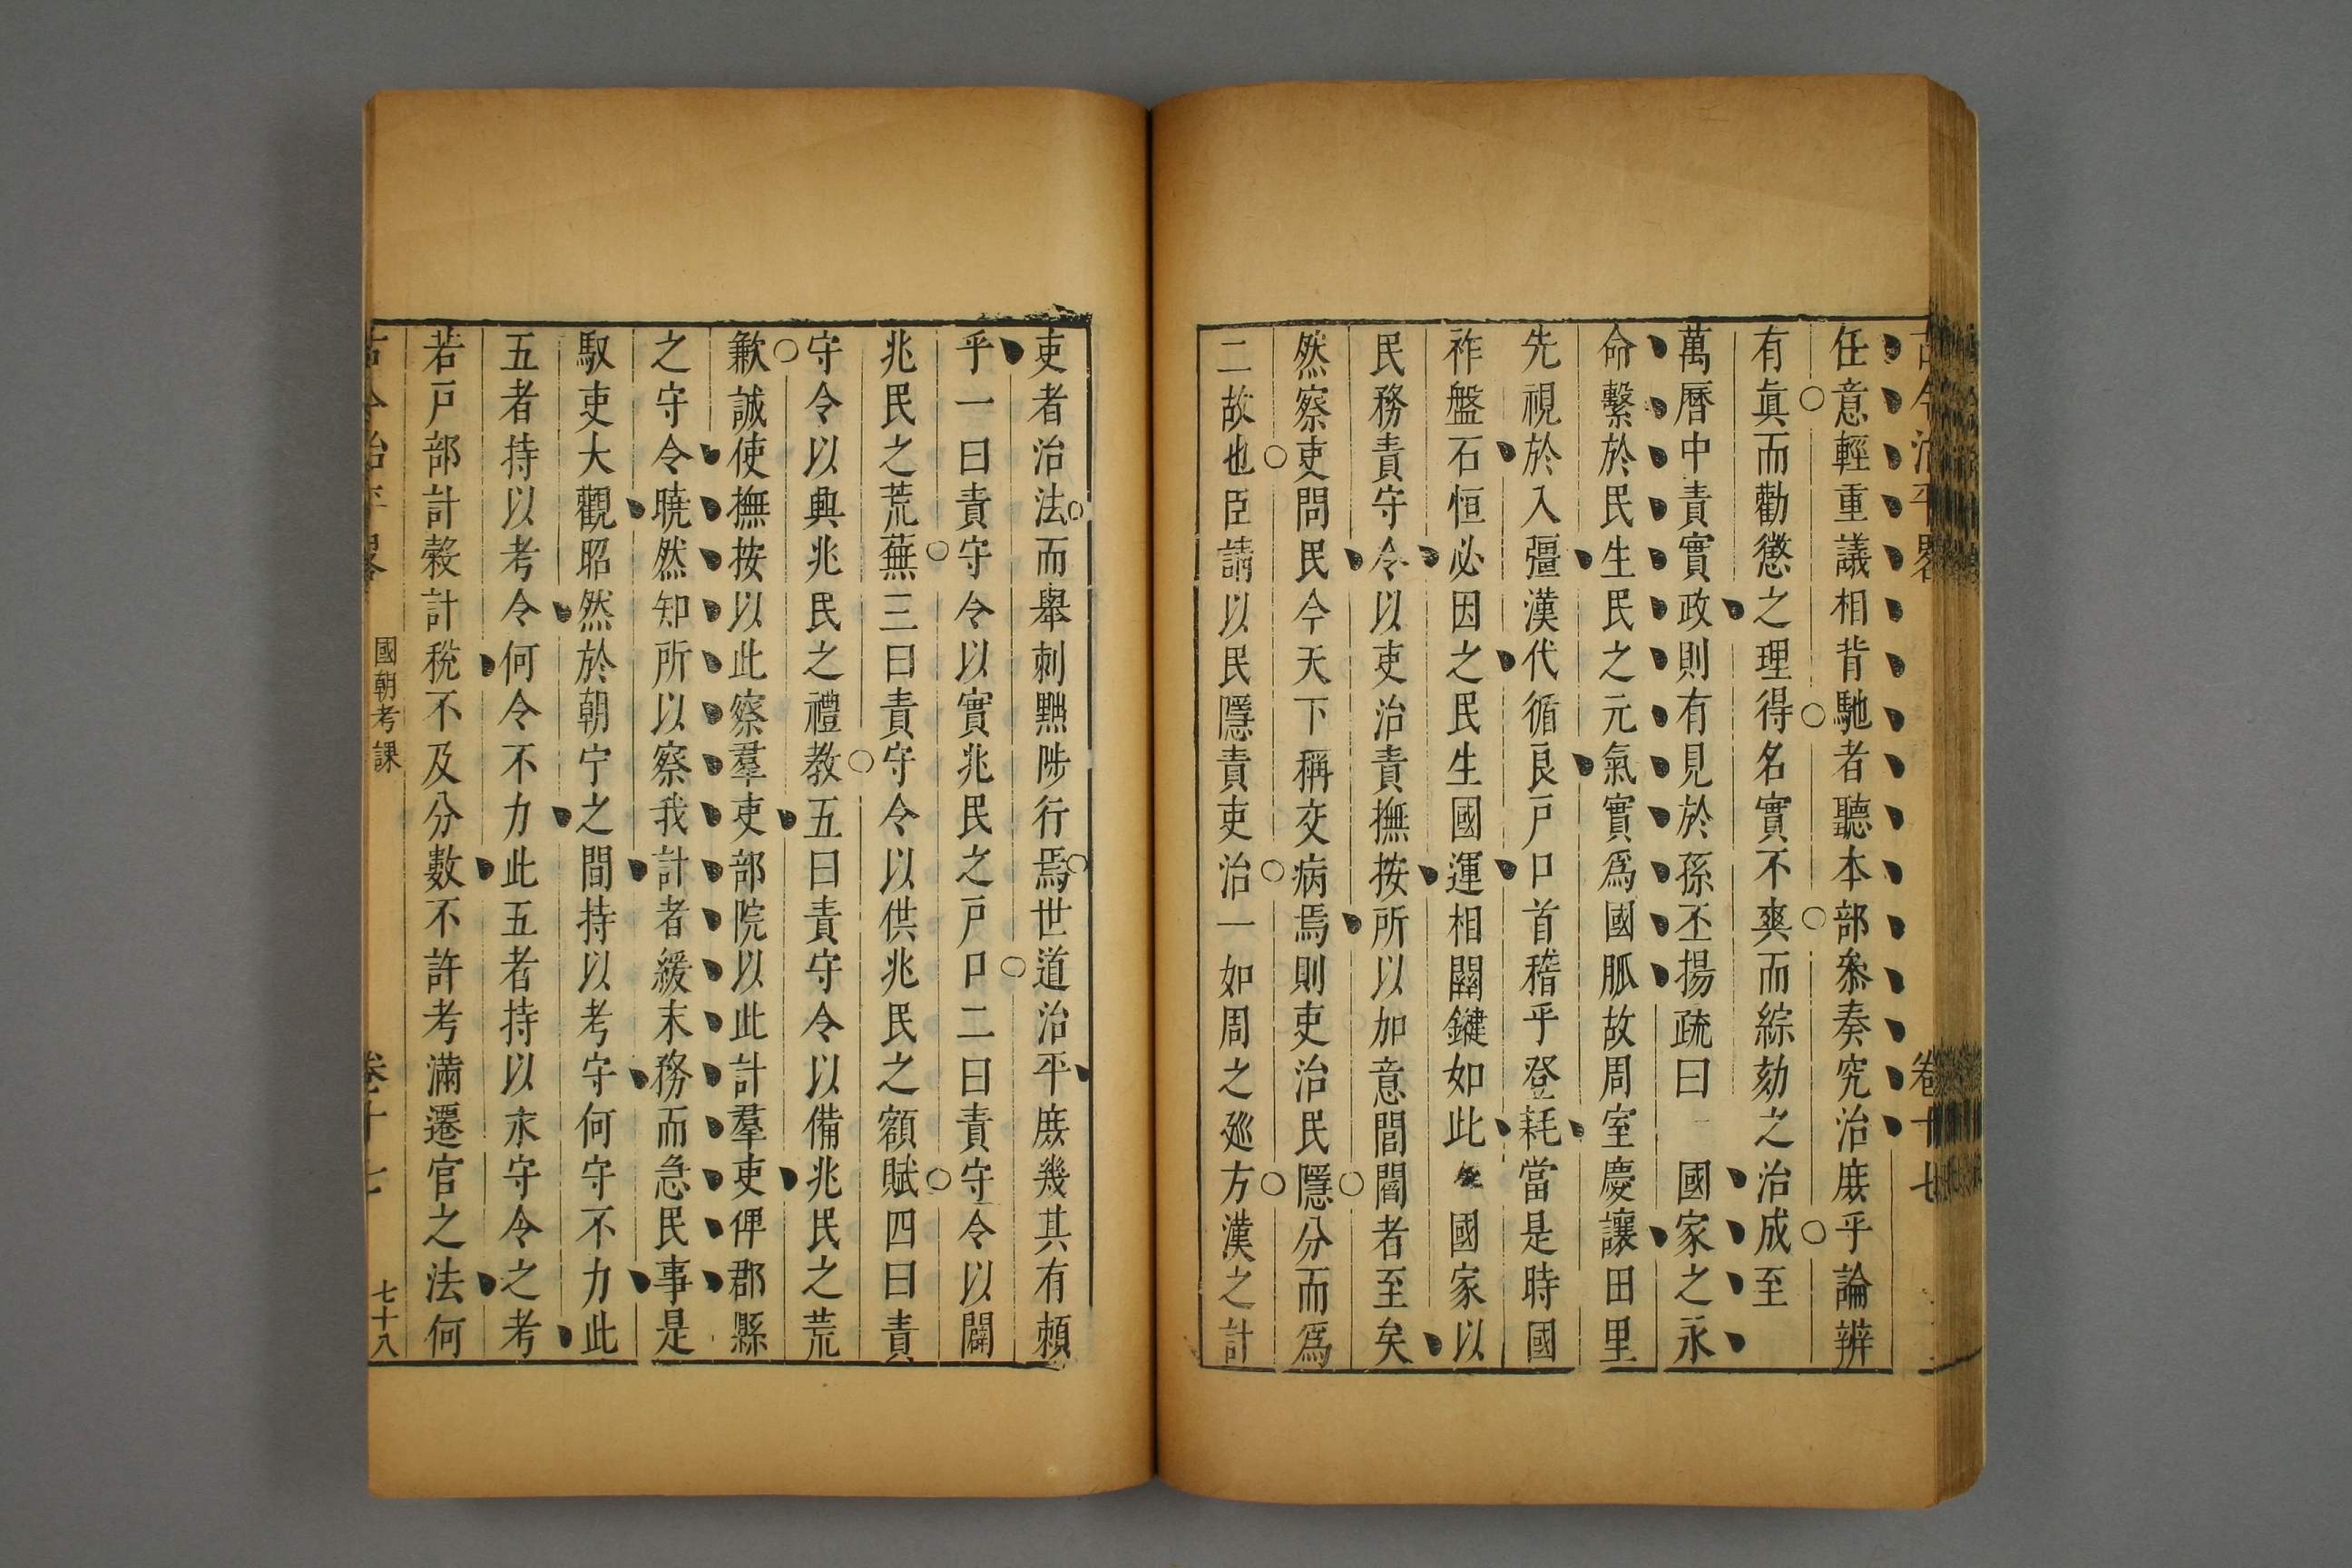 古今治平畧 卷十七
任意輕重議相背馳者聽本部叅奏究治庻乎論辨
有眞而勸懲之理得名實不爽而綜劾之治成至
萬曆中責實政則有見於孫丕揚疏曰 國家之永
命繫於民生民之元氣實爲國脈故周室慶讓田里
先視於入彊漢代循良戸口首稽乎登耗當是時國
祚盤石恒必因之民生國運相關鍵如此 國家以
民務責守令以吏治責撫按所以加意閭閻者至矣
然察吏問民今天下稱交病焉則吏治民隱分而爲
二故也臣請以民隱責吏治一如周之廵方漢之計
吏者治法而舉刺黜陟行焉世道治平庻幾其有頼
乎一曰責守令以實兆民之戸口二曰責守令以闢
兆民之荒蕪三曰責守令以供兆民之額賦四曰責
守令以興兆民之禮教五曰責守令以備兆民之荒
歉誠使撫按以此察羣吏部院以此計羣吏俾郡縣
之守令曉然知所以察我計者緩末務而急民事是
馭吏大觀昭然於朝宁之間持以考守何守不力此
五者持以考令何令不力此五者持以永守令之考
若戸部計榖計稅不及分數不許考滿遷官之法何
古今治平畧 國朝考課 卷十七 七十八